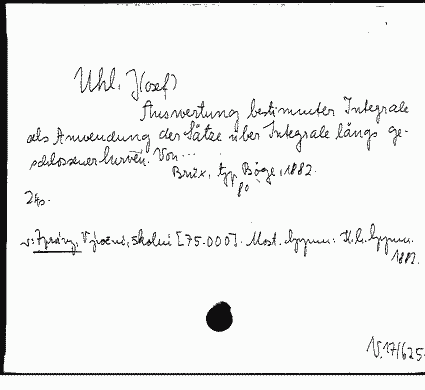 Uhl, J(osef)
Auswertung bestimmter Integrale
als Anwendung der Sätze über Integrale längs ge-
schlossener Curven. Von ...
Brüx, typ. Böge, 1882.
8o
v: Zprávy, Výroční, školní [75.000]. Most. Gymn. K.k. Gymn.
1882.